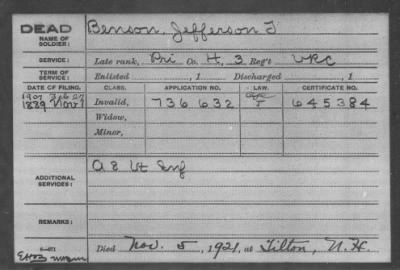 DEAD
NAME OF SOLDIER: Benson, Jefferson T
SERVICE: Late rank, Pri Co. H, 3 Reg't VRC
TERM OF SERVICE: Enlisted , 1 Discharged , 1
DATE OF FILING. CLASS. APPLICATION NO. LAW. CERTIFICATE NO.
1907 Feb 27
1889 Nov 1 Invalid, 736,632 J 645384
Widow,
Minor,
ADDITIONAL SERVICES: A 8 Vt Inf
REMARKS:
Died Nov. 5, 1921, at Tilton, N. H.